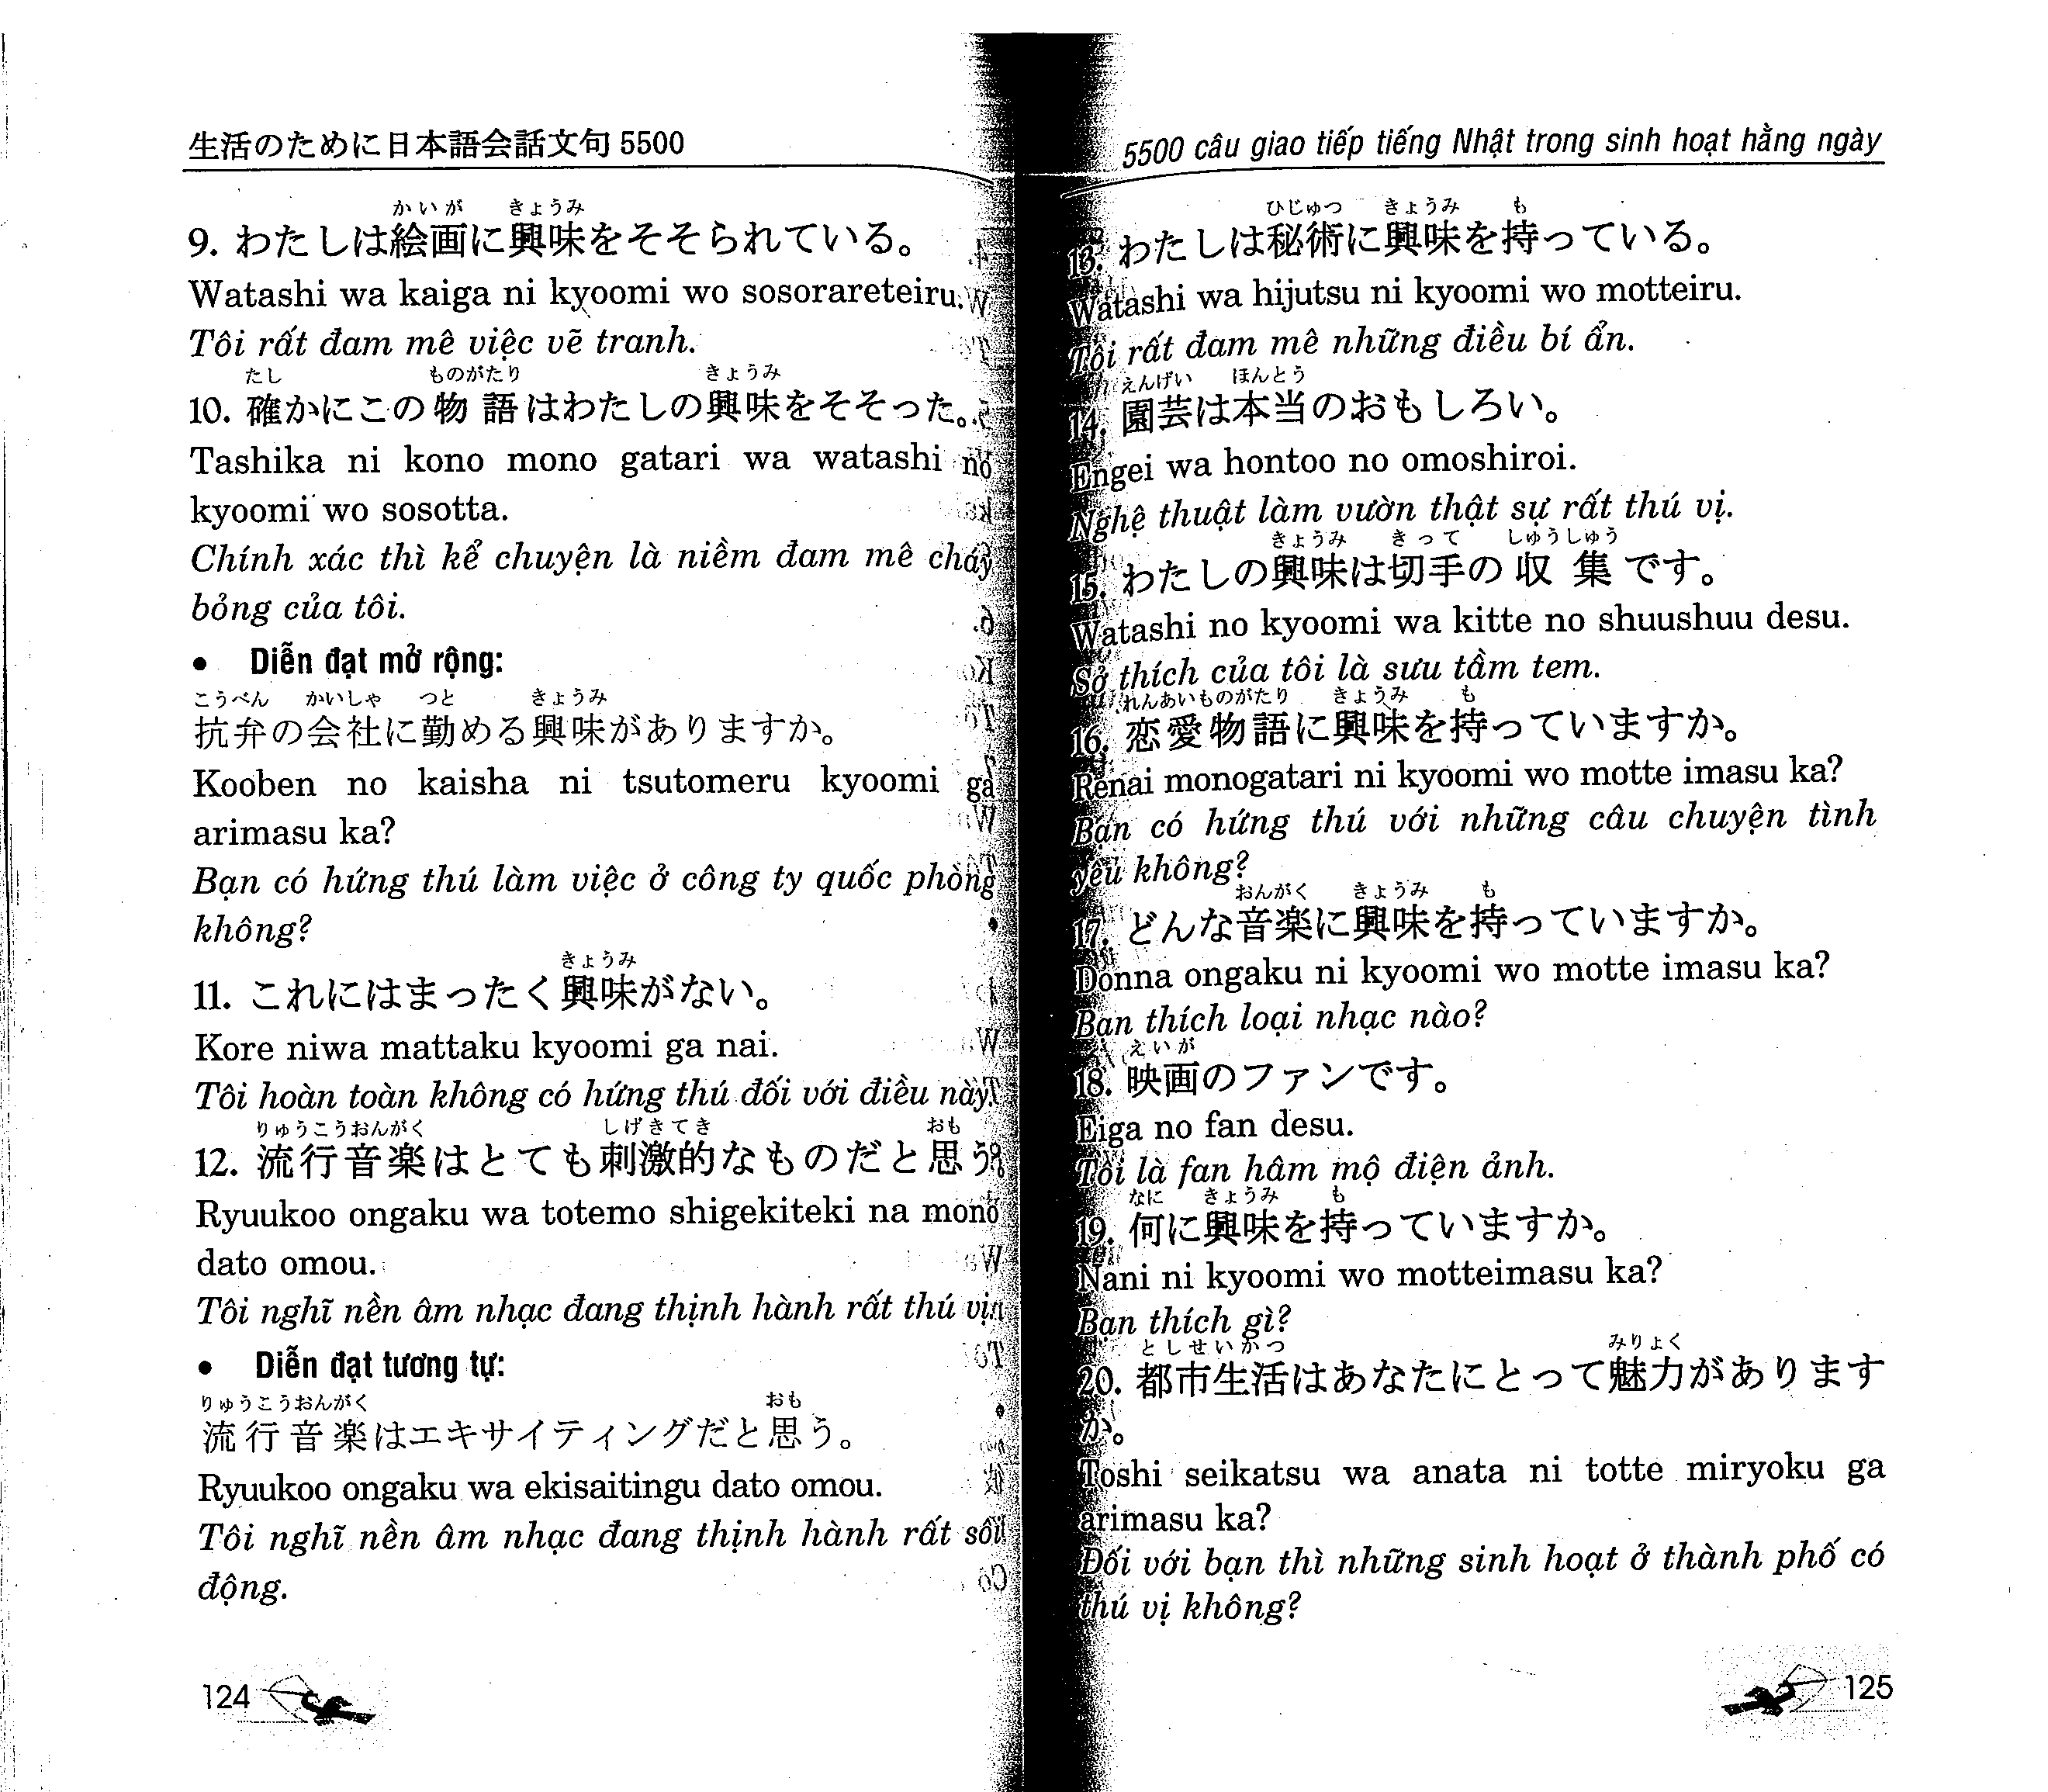 生活のために日本語会話文句 5500
かいが きょうみ
9. わたしは絵画に興味をそそられている。
Watashi wa kaiga ni kyoomi wo sosorareteiru.
Tôi rất đam mê việc vẽ tranh.
たし ものがたり きょうみ
10. 確かにこの物語はわたしの興味をそそった。
Tashika ni kono mono gatari wa watashi no
kyoomi wo sosotta.
Chính xác thì kể chuyện là niềm đam mê cháy
bỏng của tôi.
• Diễn đạt mở rộng:
こうべん かいしゃ つと きょうみ
抗弁の会社に勤める興味がありますか。
Kooben no kaisha ni tsutomeru kyoomi ga
arimasu ka?
Bạn có hứng thú làm việc ở công ty quốc phòng
không?
きょうみ
11. これにはまったく興味がない。
Kore niwa mattaku kyoomi ga nai.
Tôi hoàn toàn không có hứng thú đối với điều này.
りゅうこうおんがく しげきてき おも
12. 流行音楽はとても刺激的なものだと思う。
Ryuukoo ongaku wa totemo shigekiteki na mono
dato omou.
Tôi nghĩ nền âm nhạc đang thịnh hành rất thú vị.
• Diễn đạt tương tự:
りゅうこうおんがく おも
流行音楽はエキサイティングだと思う。
Ryuukoo ongaku wa ekisaitingu dato omou.
Tôi nghĩ nền âm nhạc đang thịnh hành rất sôi
động.
124
5500 câu giao tiếp tiếng Nhật trong sinh hoạt hằng ngày
ひじゅつ きょうみ も
13. わたしは秘術に興味を持っている。
Watashi wa hijutsu ni kyoomi wo motteiru.
Tôi rất đam mê những điều bí ẩn.
えんげい ほんとう
14. 園芸は本当のおもしろい。
Engei wa hontoo no omoshiroi.
Nghệ thuật làm vườn thật sự rất thú vị.
きょうみ きって しゅうしゅう
15. わたしの興味は切手の収集です。
Watashi no kyoomi wa kitte no shuushuu desu.
Sở thích của tôi là sưu tầm tem.
れんあいものがたり きょうみ も
16. 恋愛物語に興味を持っていますか。
Renai monogatari ni kyoomi wo motte imasu ka?
Bạn có hứng thú với những câu chuyện tình
yêu không?
おんがく きょうみ も
17. どんな音楽に興味を持っていますか。
Donna ongaku ni kyoomi wo motte imasu ka?
Bạn thích loại nhạc nào?
えいが
18. 映画のファンです。
Eiga no fan desu.
Tôi là fan hâm mộ điện ảnh.
なに きょうみ も
19. 何に興味を持っていますか。
Nani ni kyoomi wo motteimasu ka?
Bạn thích gì?
としせいかつ みりょく
20. 都市生活はあなたにとって魅力があります
か。
Toshi seikatsu wa anata ni totte miryoku ga
arimasu ka?
Đối với bạn thì những sinh hoạt ở thành phố có
thú vị không?
125